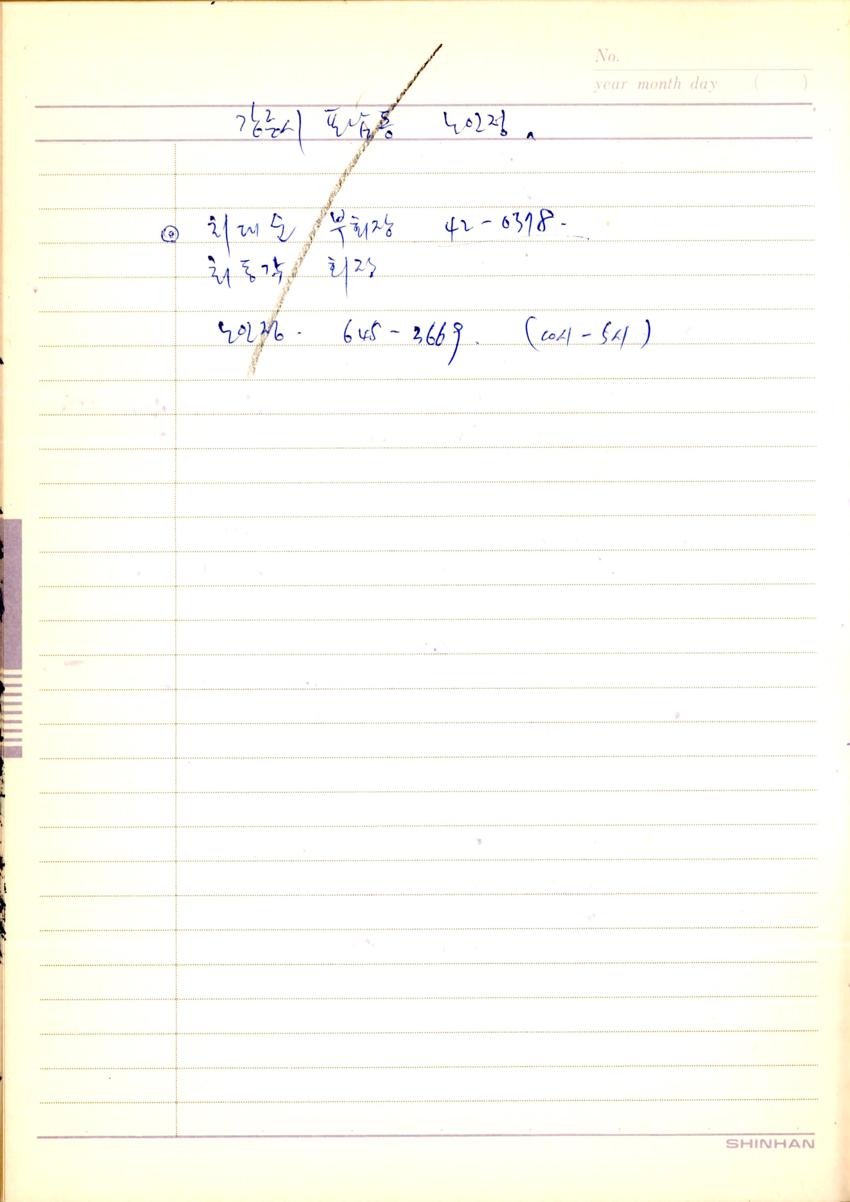 No.
year month day ( )
강릉시 포남동 노인정.
◎ 최대순 부회장 42-0378-
최동각 회장
노인정. 645-3669. (10시-5시)
SHINHAN